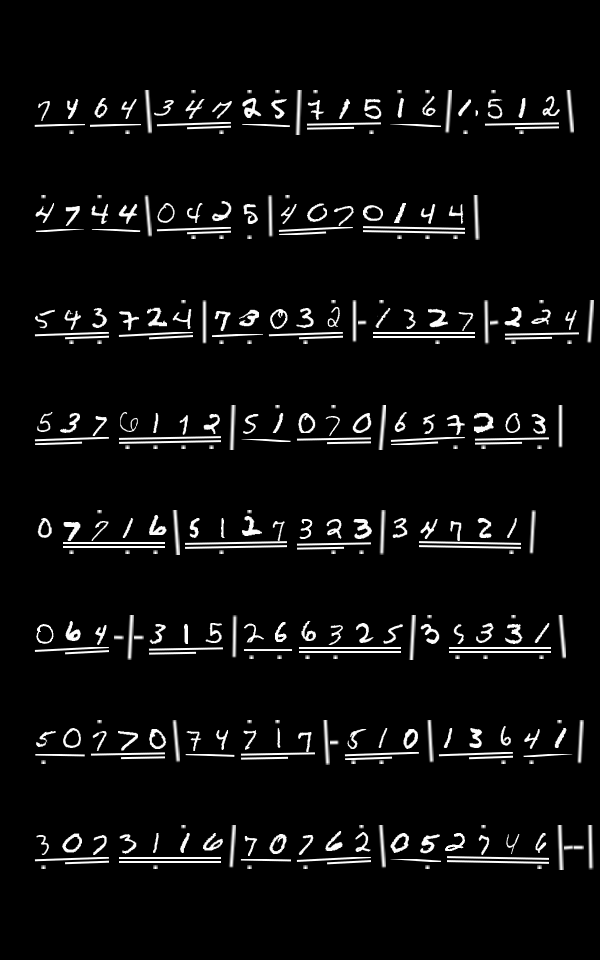 7 4 6 4 | 3 4 7 2 5 | 7 1 5 1 6 | 1 . 5 1 2 |
4 7 4 4 | 0 4 2 5 | 4 0 7 0 1 4 4 |
5 4 3 7 2 4 | 7 3 0 3 2 | - 1 3 2 7 | - 2 2 4 |
5 3 7 6 1 1 2 | 5 1 0 7 0 | 6 5 7 2 0 3 |
0 7 7 1 6 | 5 1 2 7 3 2 3 | 3 4 7 2 1 |
0 6 4 - | - 3 1 5 | 2 6 6 3 2 5 | 3 5 3 3 1 |
5 0 7 7 0 | 7 4 7 1 7 | - 5 1 0 | 1 3 6 4 1 |
3 0 7 3 1 1 6 | 7 0 7 6 2 | 0 5 2 7 4 6 | - - |